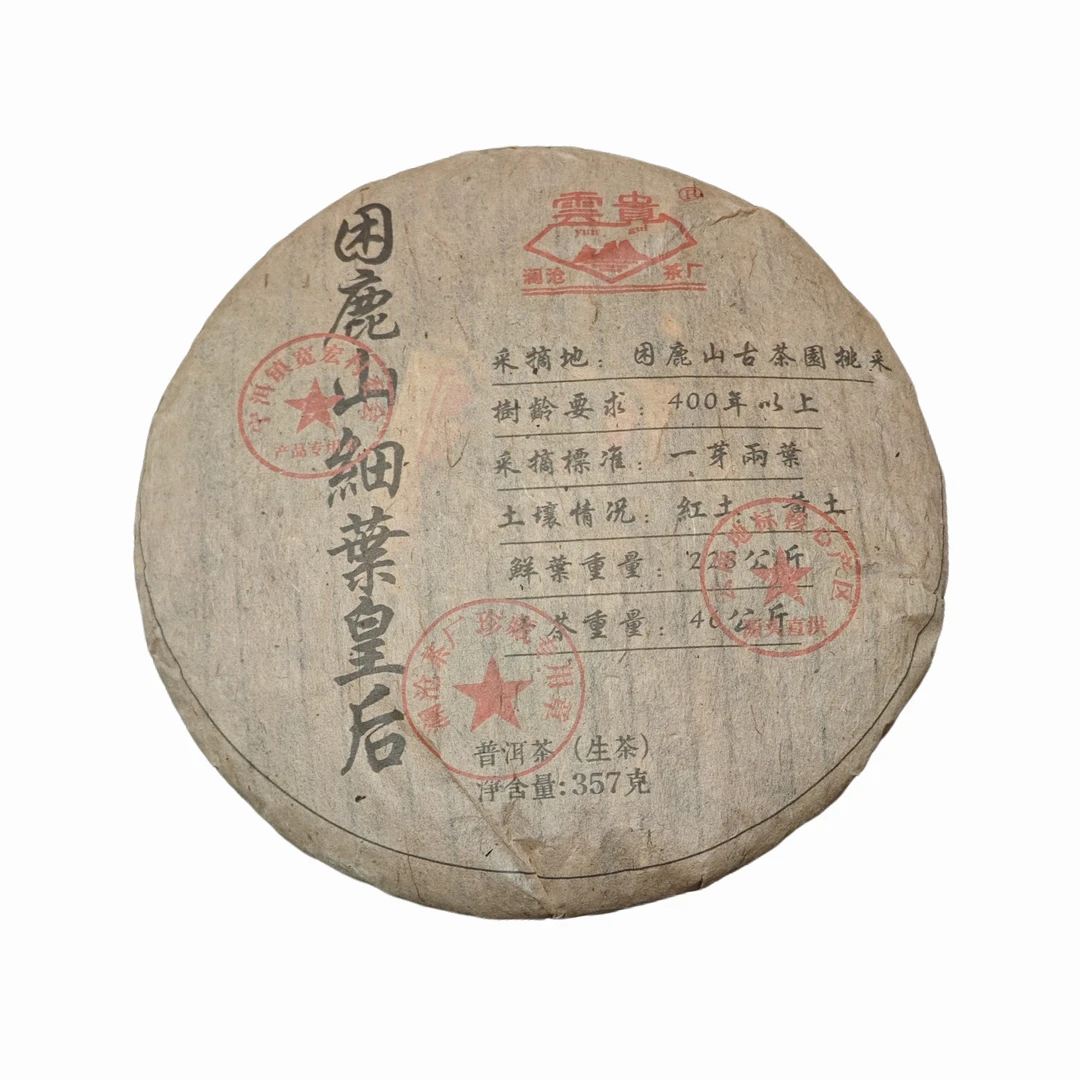 困鹿山細葉皇后
雲貴®
yun gui
澜沧 茶厂
采摘地：困鹿山古茶園挑采
樹齡要求：400年以上
采摘標准：一芽兩葉
土壤情况：紅土 黄土
鮮葉重量：228公斤
茶重量：46公斤
普洱茶（生茶）
净含量:357克
宁洱镇宽宏村
产品专用
澜沧茶厂珍藏专用章
地标 产区
直供